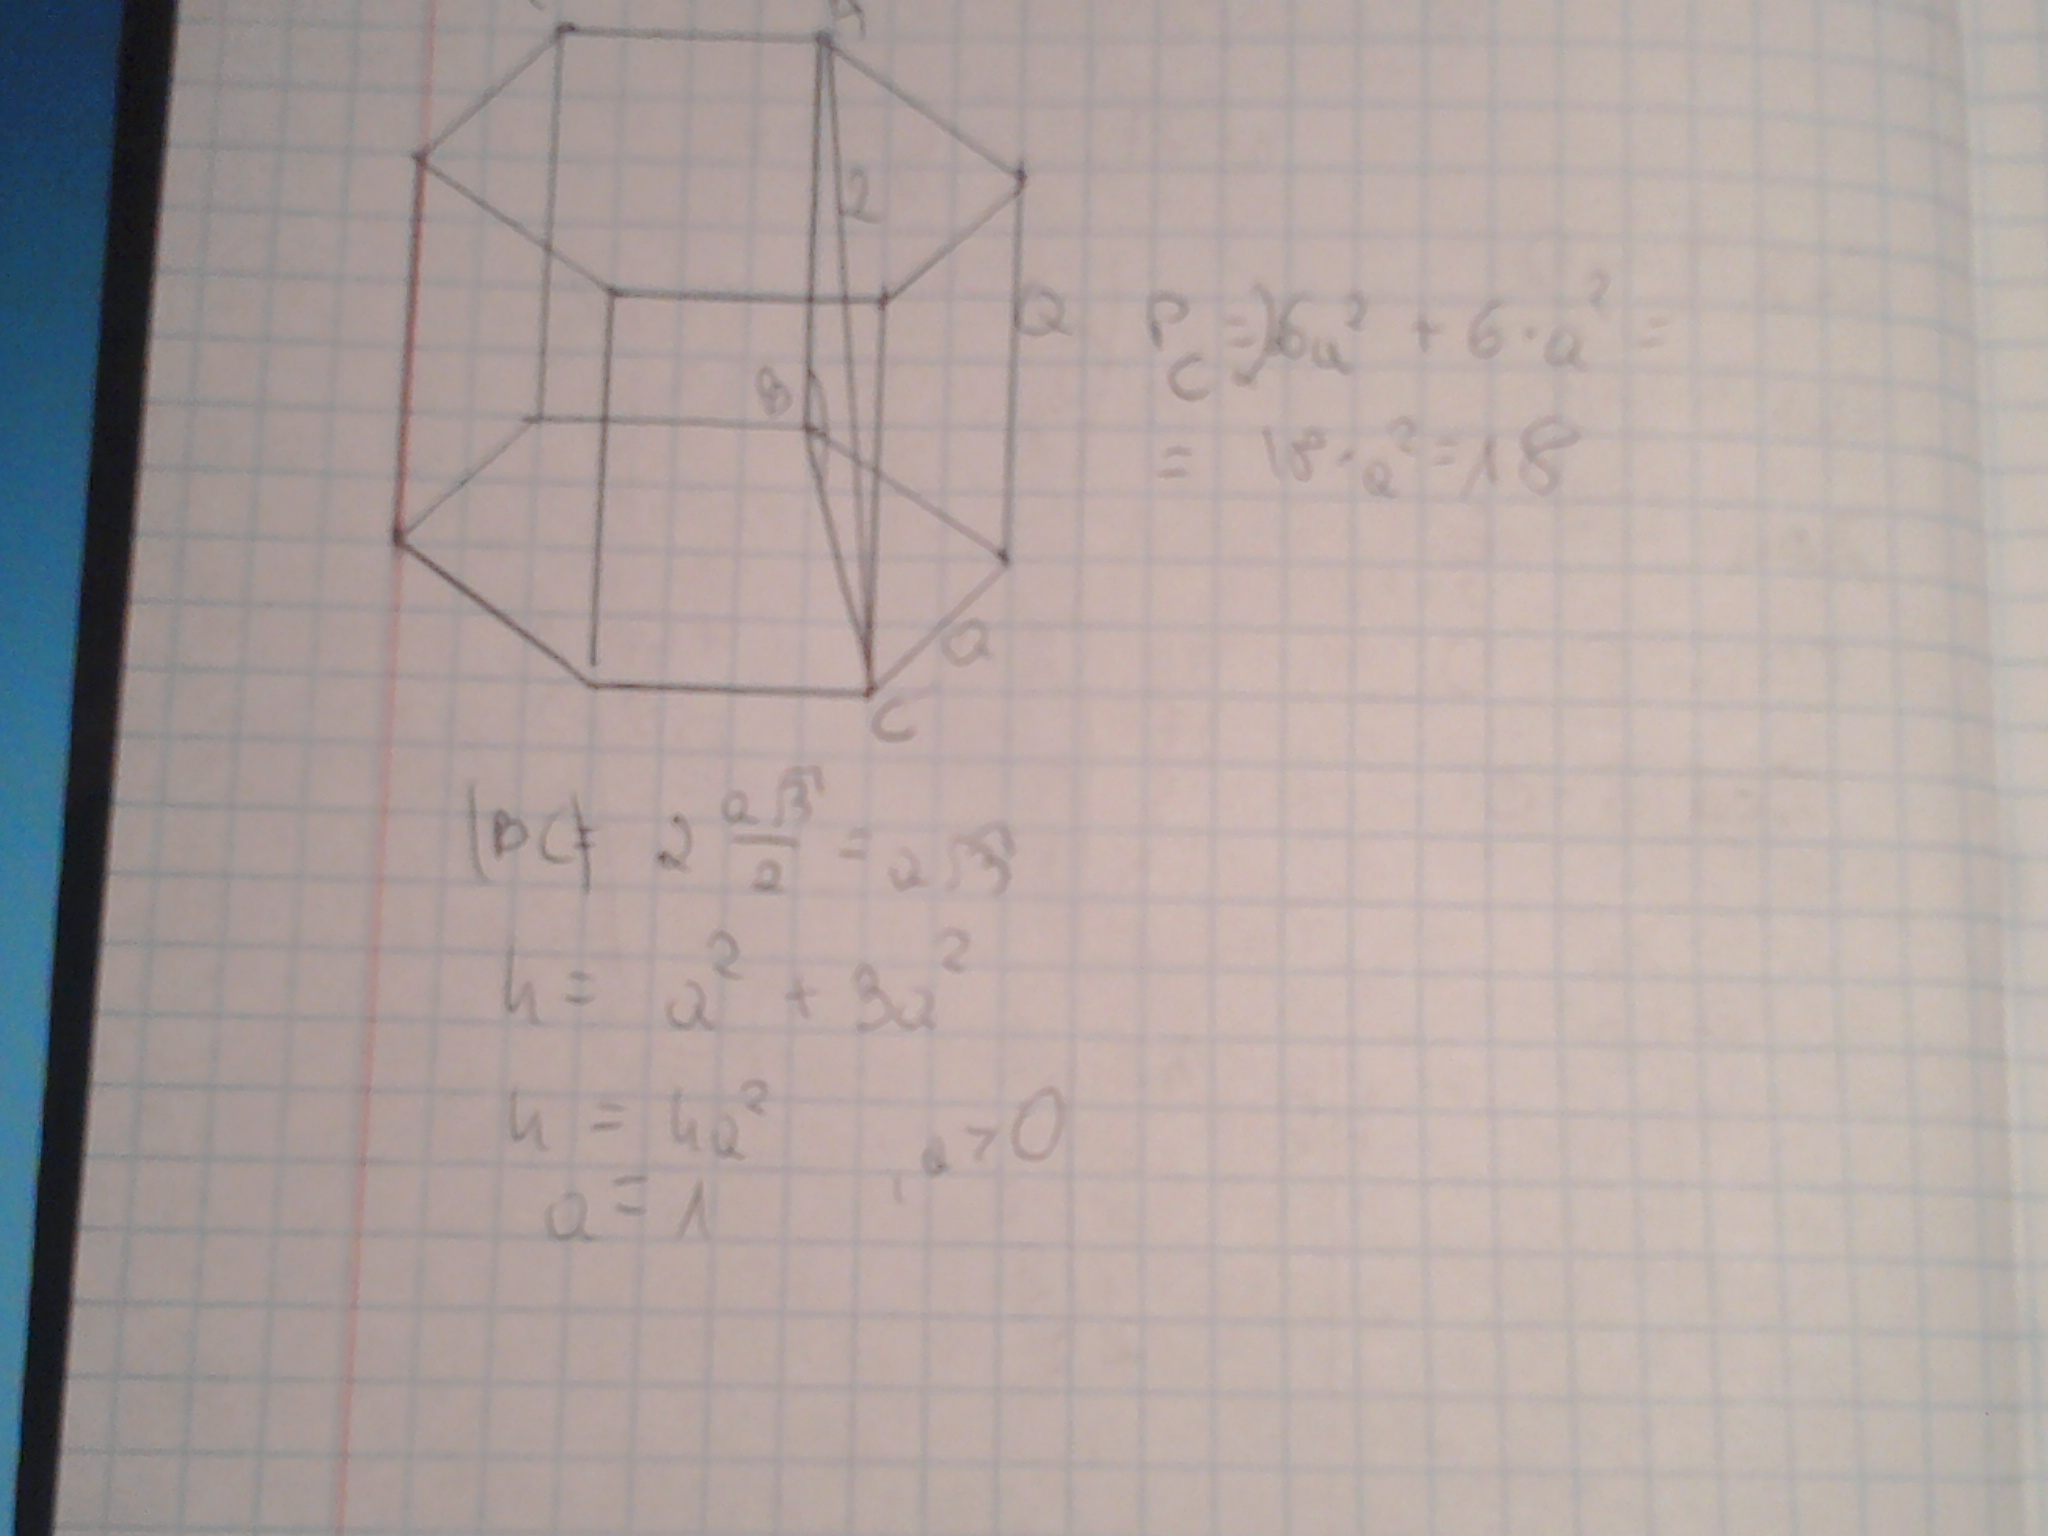 A
2
a
B
a
C
P_C = 2·6a² + 6·a² =
= 18·a² = 18
|BC| = 2 a√3/2 = a√3
4 = a² + 3a²
4 = 4a² , a > 0
a = 1